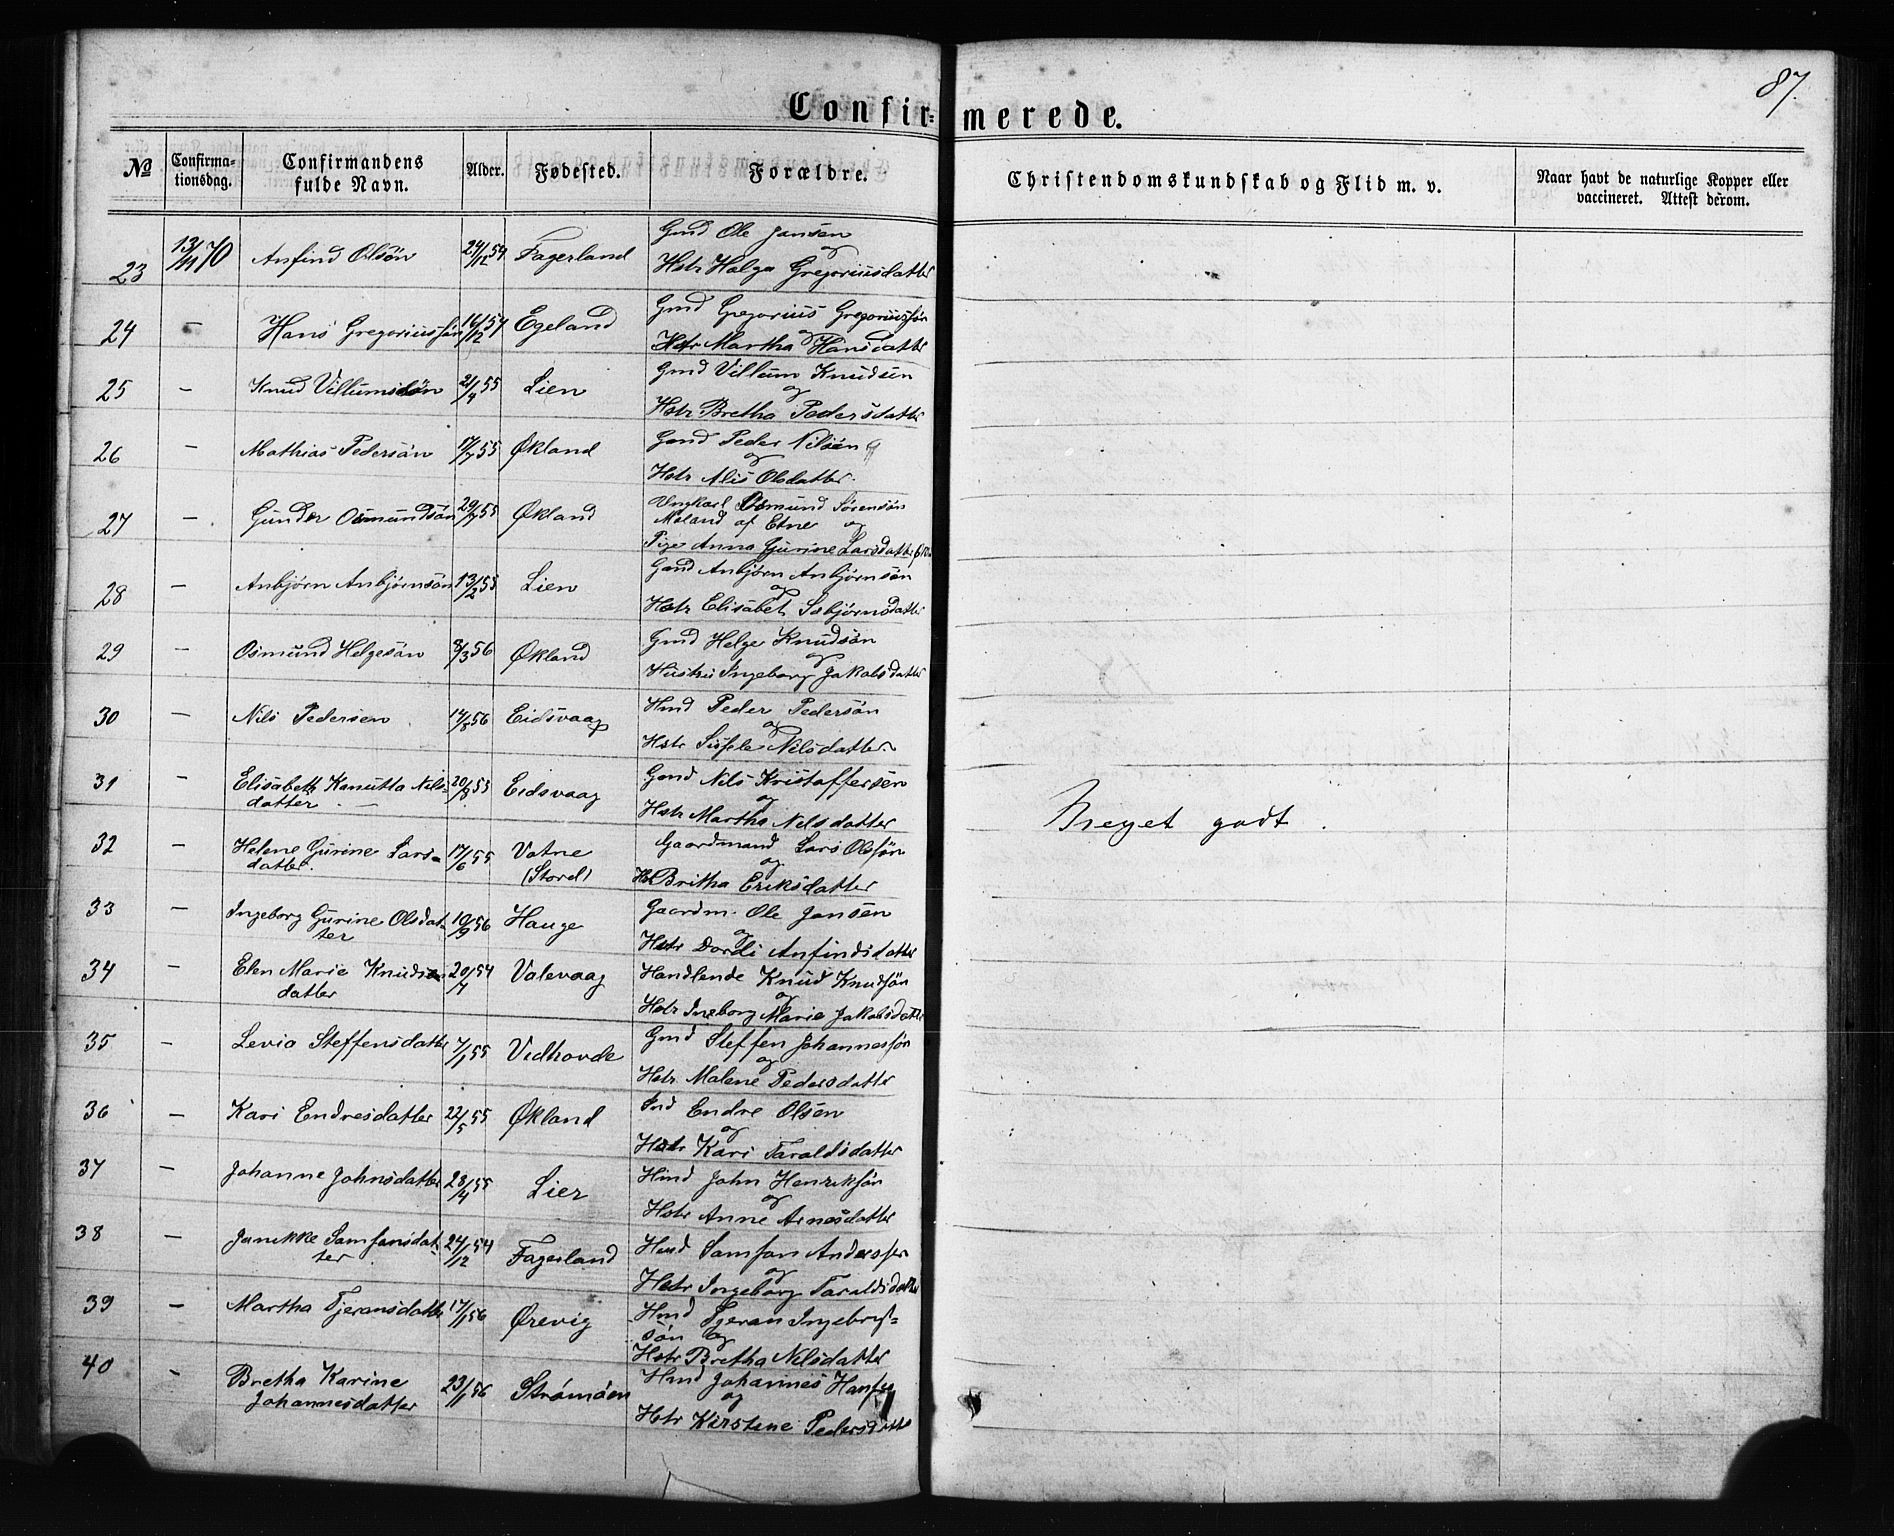 87.
Confir= merede.
No Confirma-tionsdag. Confirmandens fulde Navn. Alder. Fødested. Forældre. Christendomskundskab og Flid m. v. Naar havt de naturlige Kopper eller vaccineret. Attest derom.
23 13/11 70 Anfind Olsön 24/12 54 Fagerland Gmd Ole Jansen
og
Hstr Helga Gregoriusdatter
24 — Hans Gregoriussön 16/12 54 Egeland Gmd Gregorius Gregoriussön
og
Hstr Martha Hansdatter
25 — Knud Villumsdön 2/4 55 Lien Gmd Villum Knudsen
og
Hstr Bretha Pedersdatter
26 — Mathias Pedersön 17/7 55 Økland Gmd Peder Nilsen
og
Hstr Alis Olsdatter.
27 — Gunder Osmundsön 29/7 55 Økland Ungkarl Osmund Sörensön
Moland af Etne og
Pige Anna Gurine Larsdatter
28 — Anbjørn Anbjørnsön 13/2 55 Lien Gmd Anbjørn Anbjørnsön
og
Hstr Elisabet Sæbjørnsdatter
29 — Osmund Helgesön 8/3 56 Økland Gmd Helge Knudsön
og
Hustru Ingeborg Jakobsdatter
30 — Nils Pedersen 14/8 56 Eidsvaag Hmd Peder Pedersön
og
Hstr Sissele Nilsdatter.
31 — Elisabeth Kanutta Nils- 20/8 55 Eidsvaag Gmd Nils Kristoffersen
datter og
Hstr Martha Nilsdatter
32 — Helene Gurine Lars- 17/6 55 Vatne Gaardmand Lars Olssön
datter. (Stord) og
Hst Britha Eriksdatter
33 — Ingeborg Gurine Olsdat- 10/9 56 Hauge Gaardm. Ole Jansen
ter og
Hstr Dordi Anfindsdatter
34 — Elen Marie Knudsen 20/7 54 Valevaag Handlende Knud Knudsön
datter og
Hstr Ingeborg Marie Jakobsdatter
35 — Levia Steffensdatter 7/1 55 Vidhovde Gmd Steffen Johannessön
og
Hstr Malene Pedersdatter
36 — Kari Endresdatter 22/5 55 Økland Endre Olsen
og
Hstr Kari Taraldsdatter
37 — Johanne Johnsdatter 28/4 55 Lier Hmd John Henriksön
og
Hstr Anne Arnesdatter
38 — Janikke Samsonsdat- 24/12 54 Fagerland Hmd Samson Anderssen
ter og
Hstr Ingeborg Taraldsdatter
39 — Martha Tjeransdatter 17/1 56 Ørevig Hmd Tjeran Ingebrigt=
sön og
Hstr Bretha Nilsdatter
40 — Bretha Karine 23/1 56 Strömöen Hmd Johannes Hansen
Johannesdatter og
Hstr Kirstine Pedersdatter
Meget godt.